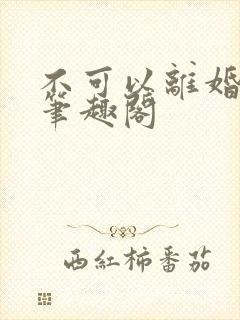 不可以離婚
筆趣閣
西紅柿番茄